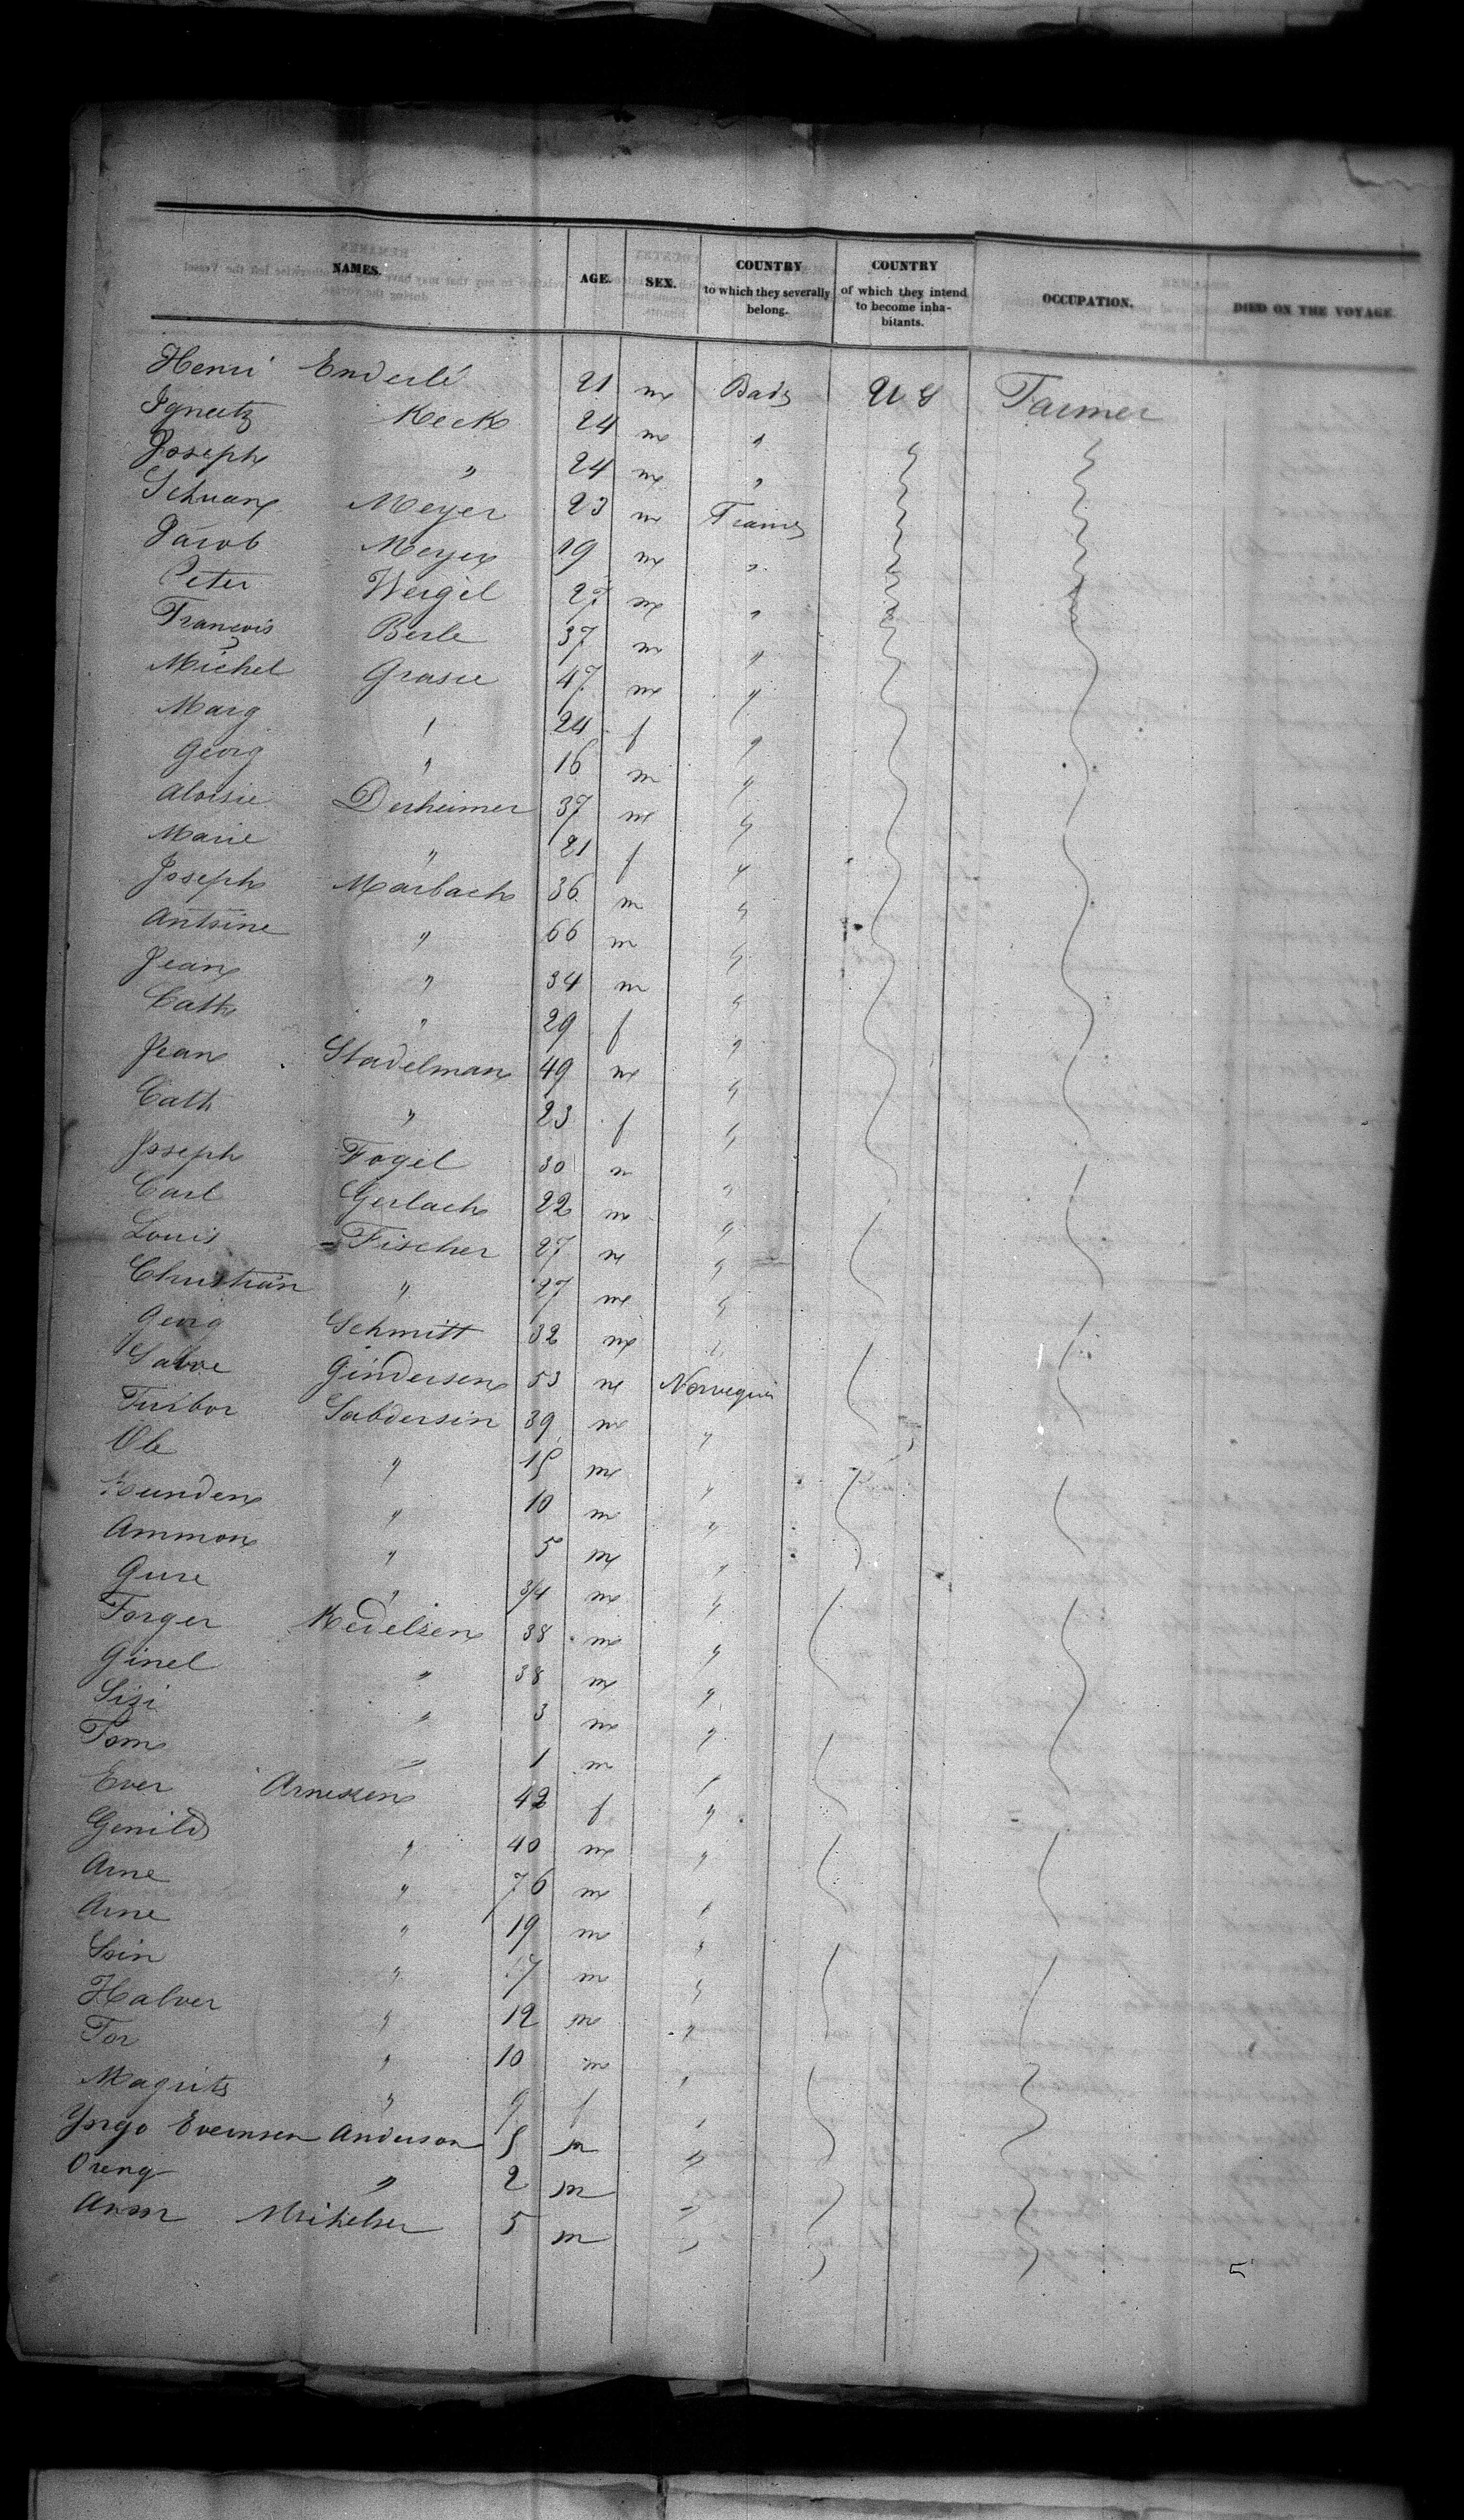 NAMES. AGE. SEX. COUNTRY to which they severally belong. COUNTRY of which they intend to become inhabitants. OCCUPATION. DIED ON THE VOYAGE.
Henri Enderlé 21 m Bade U S Farmer
Ignatz Keck 24 m "
Joseph " 24 m "
Meyer 23 m France
Jacob Meyer 19 m "
Peter Weigel 27 m "
François Berle 37 m "
Michel Grasse 47 m "
Marg " 24 f "
Georg " 16 m "
Aloisie Derheimer 37 m "
Marie " 21 f "
Joseph Marbach 36 m "
Antoine " 66 m "
Jean " 34 m "
Cath " 29 f "
Jean Stadelman 49 m "
Cath " 23 f "
Joseph Fogel 30 m "
Carl Gerlach 22 m "
Louis Fischer 27 m "
Christian " 27 m "
Georg Schmitt 32 m "
Gindersen 53 m Norvegin
Turbor Sabdersin 39 m "
Ole " 15 m "
Gunden " 10 m "
Ammon " 5 m "
Gure " 3/4 m "
Torger Kedelsen 38 m "
Ginel " 38 m "
Sizi " 3 m "
Tom " 1 m "
Ever Arnessen 42 f "
Genild " 40 m "
Arne " 76 m "
Arne " 19 m "
" 17 m "
Halver " 12 m "
Tor " 10 m "
Magrits " 9 f "
Yngo Evernsen Anderson 5 m "
Oreng " 2 m "
Mikelsen 5 m "
5